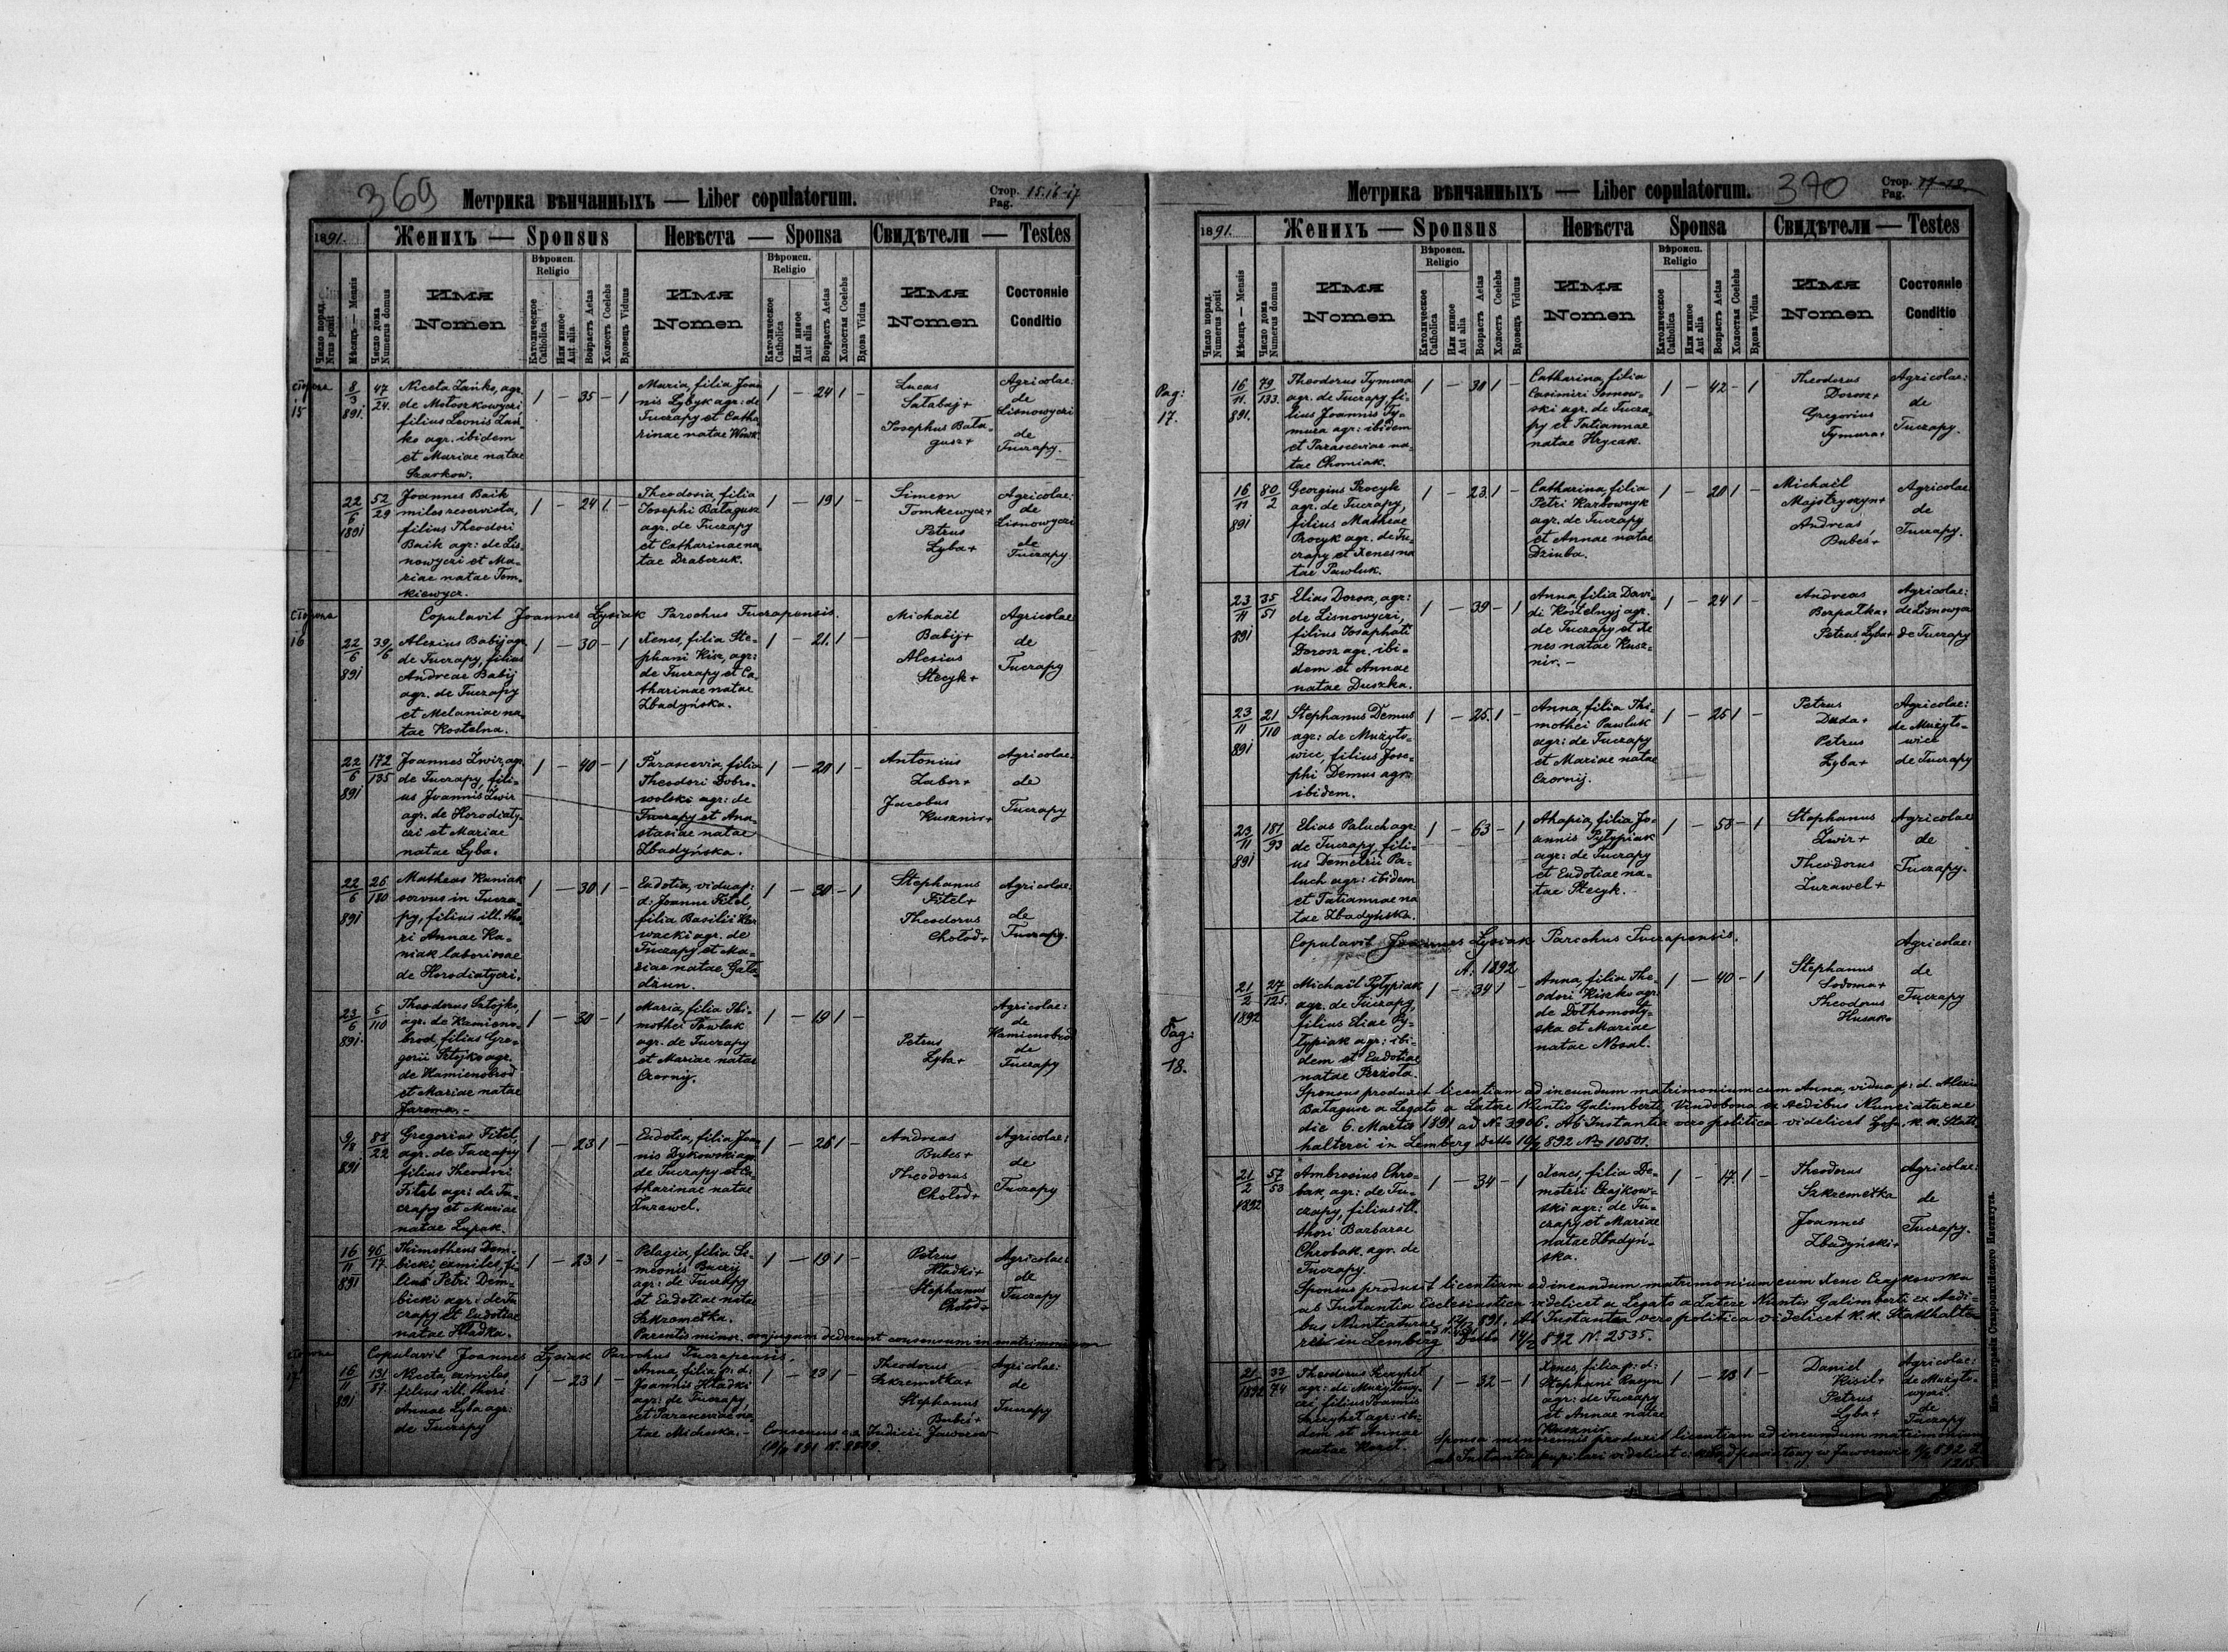 369
Метрика вѣнчанныхъ — Liber copulatorum.
Стор. Pag. 15.16-17
1891.
Женихъ — Sponsus
Невѣста — Sponsa
Свидѣтели — Testes
Число поряд. Nrus ponit
Мѣсяцъ — Mensis
Число дома Numerus domus
Имя
Nomen
Вѣроисп. Religio
Католическое Catholica
Или инное Aut alia
Возрастъ Aetas
Холостъ Coelebs
Вдовецъ Viduus
Имя
Nomen
Вѣроисп. Religio
Католическое Catholica
Или инное Aut alia
Возрастъ Aetas
Холостая Coelebs
Вдова Vidua
Имя
Nomen
Состояніе
Conditio
15
8/3 891.
47/24.
Niceta Zańko, agr.
de Mołoszkowyczi
filius Leonis Zań-
ko agr. ibidem
et Mariae natae
Szarkow.
1 — 35 — 1
Maria, filia Joan
nis Łybyk agr: de
Tuczapy et Catha-
rinae natae
1 — 24 1 —
Lucas
Sałabaj+
Josephus Bała-
gusz+
Agricolae:
de
Lisnowyczi
de
Tuczapy.
22/6 1891
52/29
Joannes Baik
miles reservista,
filius Theodori
Baik agr: de Lis-
nowyczi et Ma-
riae natae Tom-
kiewycz.
1 — 24 1. —
Theodosia, filia
Josephi Bałagusz
agr. de Tuczapy
et Catharinae na
tae Drabczuk.
1 — 19 1 —
Simeon
Tomkewycz+
Petrus
Łyba+
Agricolae:
de
Lisnowyczi
de
Tuczapy.
16
Copulavit Joannes Łysiak Parochus Tuczapensis.
22/6 891
39/6
Alexius Babij agr.
de Tuczapy, filius
Andreae Babij
agr. de Tuczapy
et Melaniae na-
tae Kostelna.
1 — 30 — 1
Xenes, filia Ste-
phani Kisz, agr:
de Tuczapy et Ca-
tharinae natae
Zbadyńska.
1 — 21. 1 —
Michaël
Babij+
Alexius
Stecyk+
Agricolae
de
Tuczapy
22/6 891
172/135
Joannes Żwir, agr.
de Tuczapy, fili-
us Joannis Żwir
agr. de Horodiaty-
czi et Mariae
natae Łyba.
1 — 40 — 1
Parascevia, filia
Theodori Dobro-
wolski agr: de
Tuczapy et Ana-
stasiae natae
Zbadyńska.
1 — 20 1 —
Antonius
Zabor+
Jacobus
Kusznir+
Agricolae:
de
Tuczapy
22/6 891
26/180
Matheas Kaniak
servus in Tucza-
py, filius ill. tho-
ri Annae Ka-
niak laborissae
de Horodiatyczi.
1 — 30 1 —
Eudotia, vidua p:
d: Joanne Fitel,
filia Basilii Kor
wacki agr. de
Tuczapy et Ma-
riae natae Gała-
dzun.
1 — 30 — 1
Stephanus
Fitel+
Theodorus
Chołod+
Agricolae:
de
Tuczapy.
23/6 891.
5/110
Theodorus Sztojko,
agr. de Kamieno-
brod, filius Gre-
gorii Sztojko agr.
de Kamienobrod
et Mariae natae
Jarema. -
1 — 30 — 1
Maria, filia Thi-
mothei Pawluk
agr. de Tuczapy
et Mariae natae
Czornij.
1 — 19 1 —
Petrus
Łyba+
Agricolae:
de
Kamienobrod
de
Tuczapy
9/8 891
88/22
Gregorius Fitel,
agr. de Tuczapy
filius Theodori
Fitel agr: de Tu-
czapy et Mariae
natae Lupak.
1 — 23 1 —
Eudotia, filia Joan
nis Dykowski agr.
de Tuczapy et Ca-
tharinae natae
Zurawel.
1 — 26 1 —
Andreas
Bubes+
Theodorus
Chołod+
Agricolae:
de
Tuczapy
16/11 891
46/17.
Thimotheus Dem-
bicki, exmiles, fi-
lius Petri Dem-
bicki agr: de Tu
czapy et Eudotiae
natae Hładka.
1 — 23 1 —
Pelagia, filia Si-
meonis Buczij
agr: de Tuczapy
et Eudotiae natae
Szkremetka.
1 — 19 1 —
Petrus
Hładki+
Stephanus
Chołod+
Agricolae:
de
Tuczapy
Parentis minor. conjugum dederunt consensum in matrimonium
Copulavit Joannes Łysiak Parochus Tuczapensis.
16/11 891
131/87.
Niceta, exmiles,
filius ill. thori
Annae Łyba agr:
de Tuczapy
1 — 23 1 —
Anna, filia p: d:
Joannis Hładki
agr: de Tuczapy,
et Parasceviae na
tae Michuka. -
1 — 23 1 —
Theodorus
Szkremetka+
Stephanus
Bubes+
Agricolae:
de
Tuczapy
Consensus c.r. Judicii Jaworow
370
Метрика вѣнчанныхъ — Liber copulatorum.
Стор. Pag. 17-18
1891.
Женихъ — Sponsus
Невѣста Sponsa
Свидѣтели — Testes
Число поряд. Numerus ponit
Мѣсяцъ — Mensis
Число дома Numerus domus
Имя
Nomen
Вѣроисп. Religio
Католическое Catholica
Или инное Aut alia
Возрастъ Aetas
Холостъ Coelebs
Вдовецъ Viduus
Имя
Nomen
Вѣроисп. Religio
Католическое Catholica
Или инное Aut alia
Возрастъ Aetas
Холостая Coelebs
Вдова Vidua
Имя
Nomen
Состояніе
Conditio
Pag:
17.
16/11. 891.
79/133.
Theodorus Tymura
agr. de Tuczapy, fi-
lius Joannis Ty-
mura agr: ibidem
et Parasceviae na-
tae Chomiak.
1 — 30 1 —
Catharina, filia
Casimiri Somow-
ski agr. de Tucza-
py et Tatiannae
natae Hrycak.
1 — 42 — 1
Theodorus
Dorosz+
Gregorius
Tymura+
Agricolae:
de
Tuczapy.
16/11 891
80/2
Georgius Procyk
agr. de Tuczapy,
filius Matheae
Procyk agr. de Tu-
czapy et Xenes na
tae Pawluk.
1 — 23. 1 —
Catharina, filia
Petri Karbownyk
agr. de Tuczapy
et Annae natae
Dziuba.
1 — 20 1 —
Michaël
Majstryszyn+
Andreas
Bubes+
Agricolae
de
Tuczapy.
23/11 891
35/51
Elias Dorosz, agr:
de Lisnowyczi,
filius Josaphati
Dorosz agr. ibi-
dem et Annae
natae Duszka.
1 — 39 — 1
Anna, filia Davi-
di Kostelnyj agr.
de Tuczapy et Xe
nes natae Kusz-
nir. -
1 — 24 1 —
Andreas
Bezpałka+
Petrus Łyba+
Agricolae:
de Lisnowycz
de Tuczapy
23/11 891
21/110
Stephanus Demus
agr: de Mużyło-
wice, filius Jose-
phi Demus agr:
ibidem.
1 — 25. 1 —
Anna, filia Thi-
mothei Pawluk
agr: de Tuczapy
et Mariae natae
Czornij.
1 — 25 1 —
Petrus
Duda+
Petrus
Łyba+
Agricolae:
de Mużyło-
wice
de Tuczapy
23/11 891
181/93
Elias Paluch agr:
de Tuczapy, fili-
us Demetrii Pa-
luch agr: ibidem
et Tatiannae na
tae Zbadyńska.
1 — 63 — 1
Ahapia, filia Jo-
annis Pyłypiak
agr: de Tuczapy
et Eudotiae na-
tae Stecyk.
1 — 58 — 1
Stephanus
Żwir+
Theodorus
Zurawel+
Agricolae
de
Tuczapy.
Copulavit Joannes Łysiak Parochus Tuczapensis.
A: 1892
Pag:
18.
21/2 1892
27/125.
Michaël Pyłypiak
agr. de Tuczapy,
filius Eliae Py-
łypiak agr: ibi-
dem et Eudotiae
natae Perzota.
1 — 34 1 —
Anna, filia The-
odori Kiszko agr:
de Dołhomosty-
ska et Mariae
natae Nosal.
1 — 40 — 1
Stephanus
Sodoma+
Theodorus
Husak+
Agricolae:
de
Tuczapy
Sponsus produxit licentiam ad ineundum matrimonium cum Anna, vidua p: d. Alexio
Bałagusz a Legato a Latere Nuntio Galimberti, Vindobona ex Aedibus Nunciaturae
die 6. Martii 1891 ad № 3906. Ab Instantia vero politica videlicet k. k. Statt-
halterei in Lemberg Detto 892 № 10501.
21/2 1892
57/53
Ambrosius Chro-
bak, agr: de Tu-
czapy, filius ill.
thori Barbarae
Chrobak. agr. de
Tuczapy.
1 — 34 — 1
Xenes, filia De-
metrii Czajkow-
ski agr: de Tu-
czapy et Mariae
natae Zbadyń-
ska.
1 — 17. 1 —
Theodorus
Szkremetka
Joannes
Zbadyński+
Agricolae:
de
Tuczapy.
Sponsus produxit licentiam ad ineundum matrimonium cum Xene Czajkowska
ab Instantia Ecclesiastica videlicet a Legato a Latere Nuntio Galimberti ex Aedi-
bus Nuntiaturae 891. Ab Instantia vero politica videlicet k. k. Statthalte-
rei in Lemberg Detto 14/2 892 N. 2535.
21/2 1892
33/74
Theodorus Szeryhet
agr: de Mużyłowy-
czi, filius Joannis
Szeryhet agr: ibi-
dem et Annae
natae Koreł.
1 — 32 — 1
Xenes, filia p: d:
Stephani Rasyn
agr: de Tuczapy
et Annae natae
Kusznir.
1 — 23 1 —
Daniel
Kisil+
Petrus
Łyba+
Agricolae:
de Mużyło-
wyczi
de
Tuczapy
Sponsa minorennis produxit licentiam ad ineundum matrimonium
ab Instantia pupilari videlicet c: k. Sąd powiatowy w Jaworowie 892 L
1215.
Изъ типографіи Ставропигійского Института.